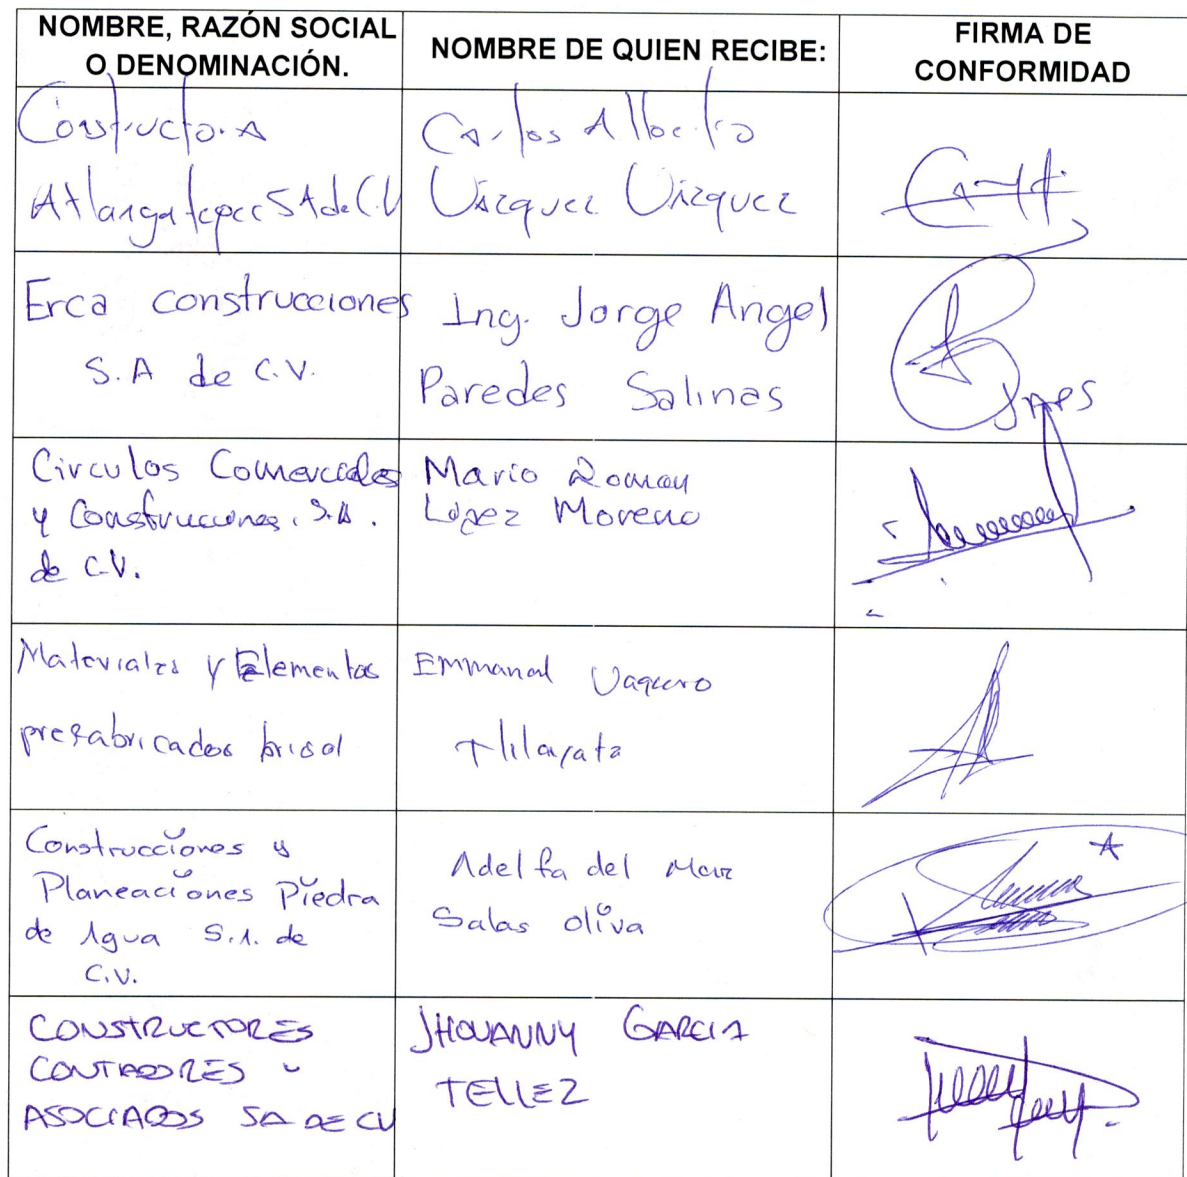 NOMBRE, RAZÓN SOCIAL
O DENOMINACIÓN.
NOMBRE DE QUIEN RECIBE:
FIRMA DE
CONFORMIDAD
Constructora
Atlangatepec SA de C.V
Carlos Alberto
Vázquez Vázquez
Erca construcciones
S.A de C.V.
Ing. Jorge Angel
Paredes Salinas
JAPS
Circulos Comerciales
y Construcciones, S.A.
de C.V.
Mario Roman
Lopez Moreno
Materiales y Elementos
prefabricados brisol
Emmanal Vaquero
Construcciones y
Planeaciones Piedra
de Agua S.A. de
C.V.
Adelfa del Mar
Salas Oliva
CONSTRUCTORES
CONTRADORES Y
ASOCIADOS SA DE CV
JHOVANNY GARCIA
TELLEZ